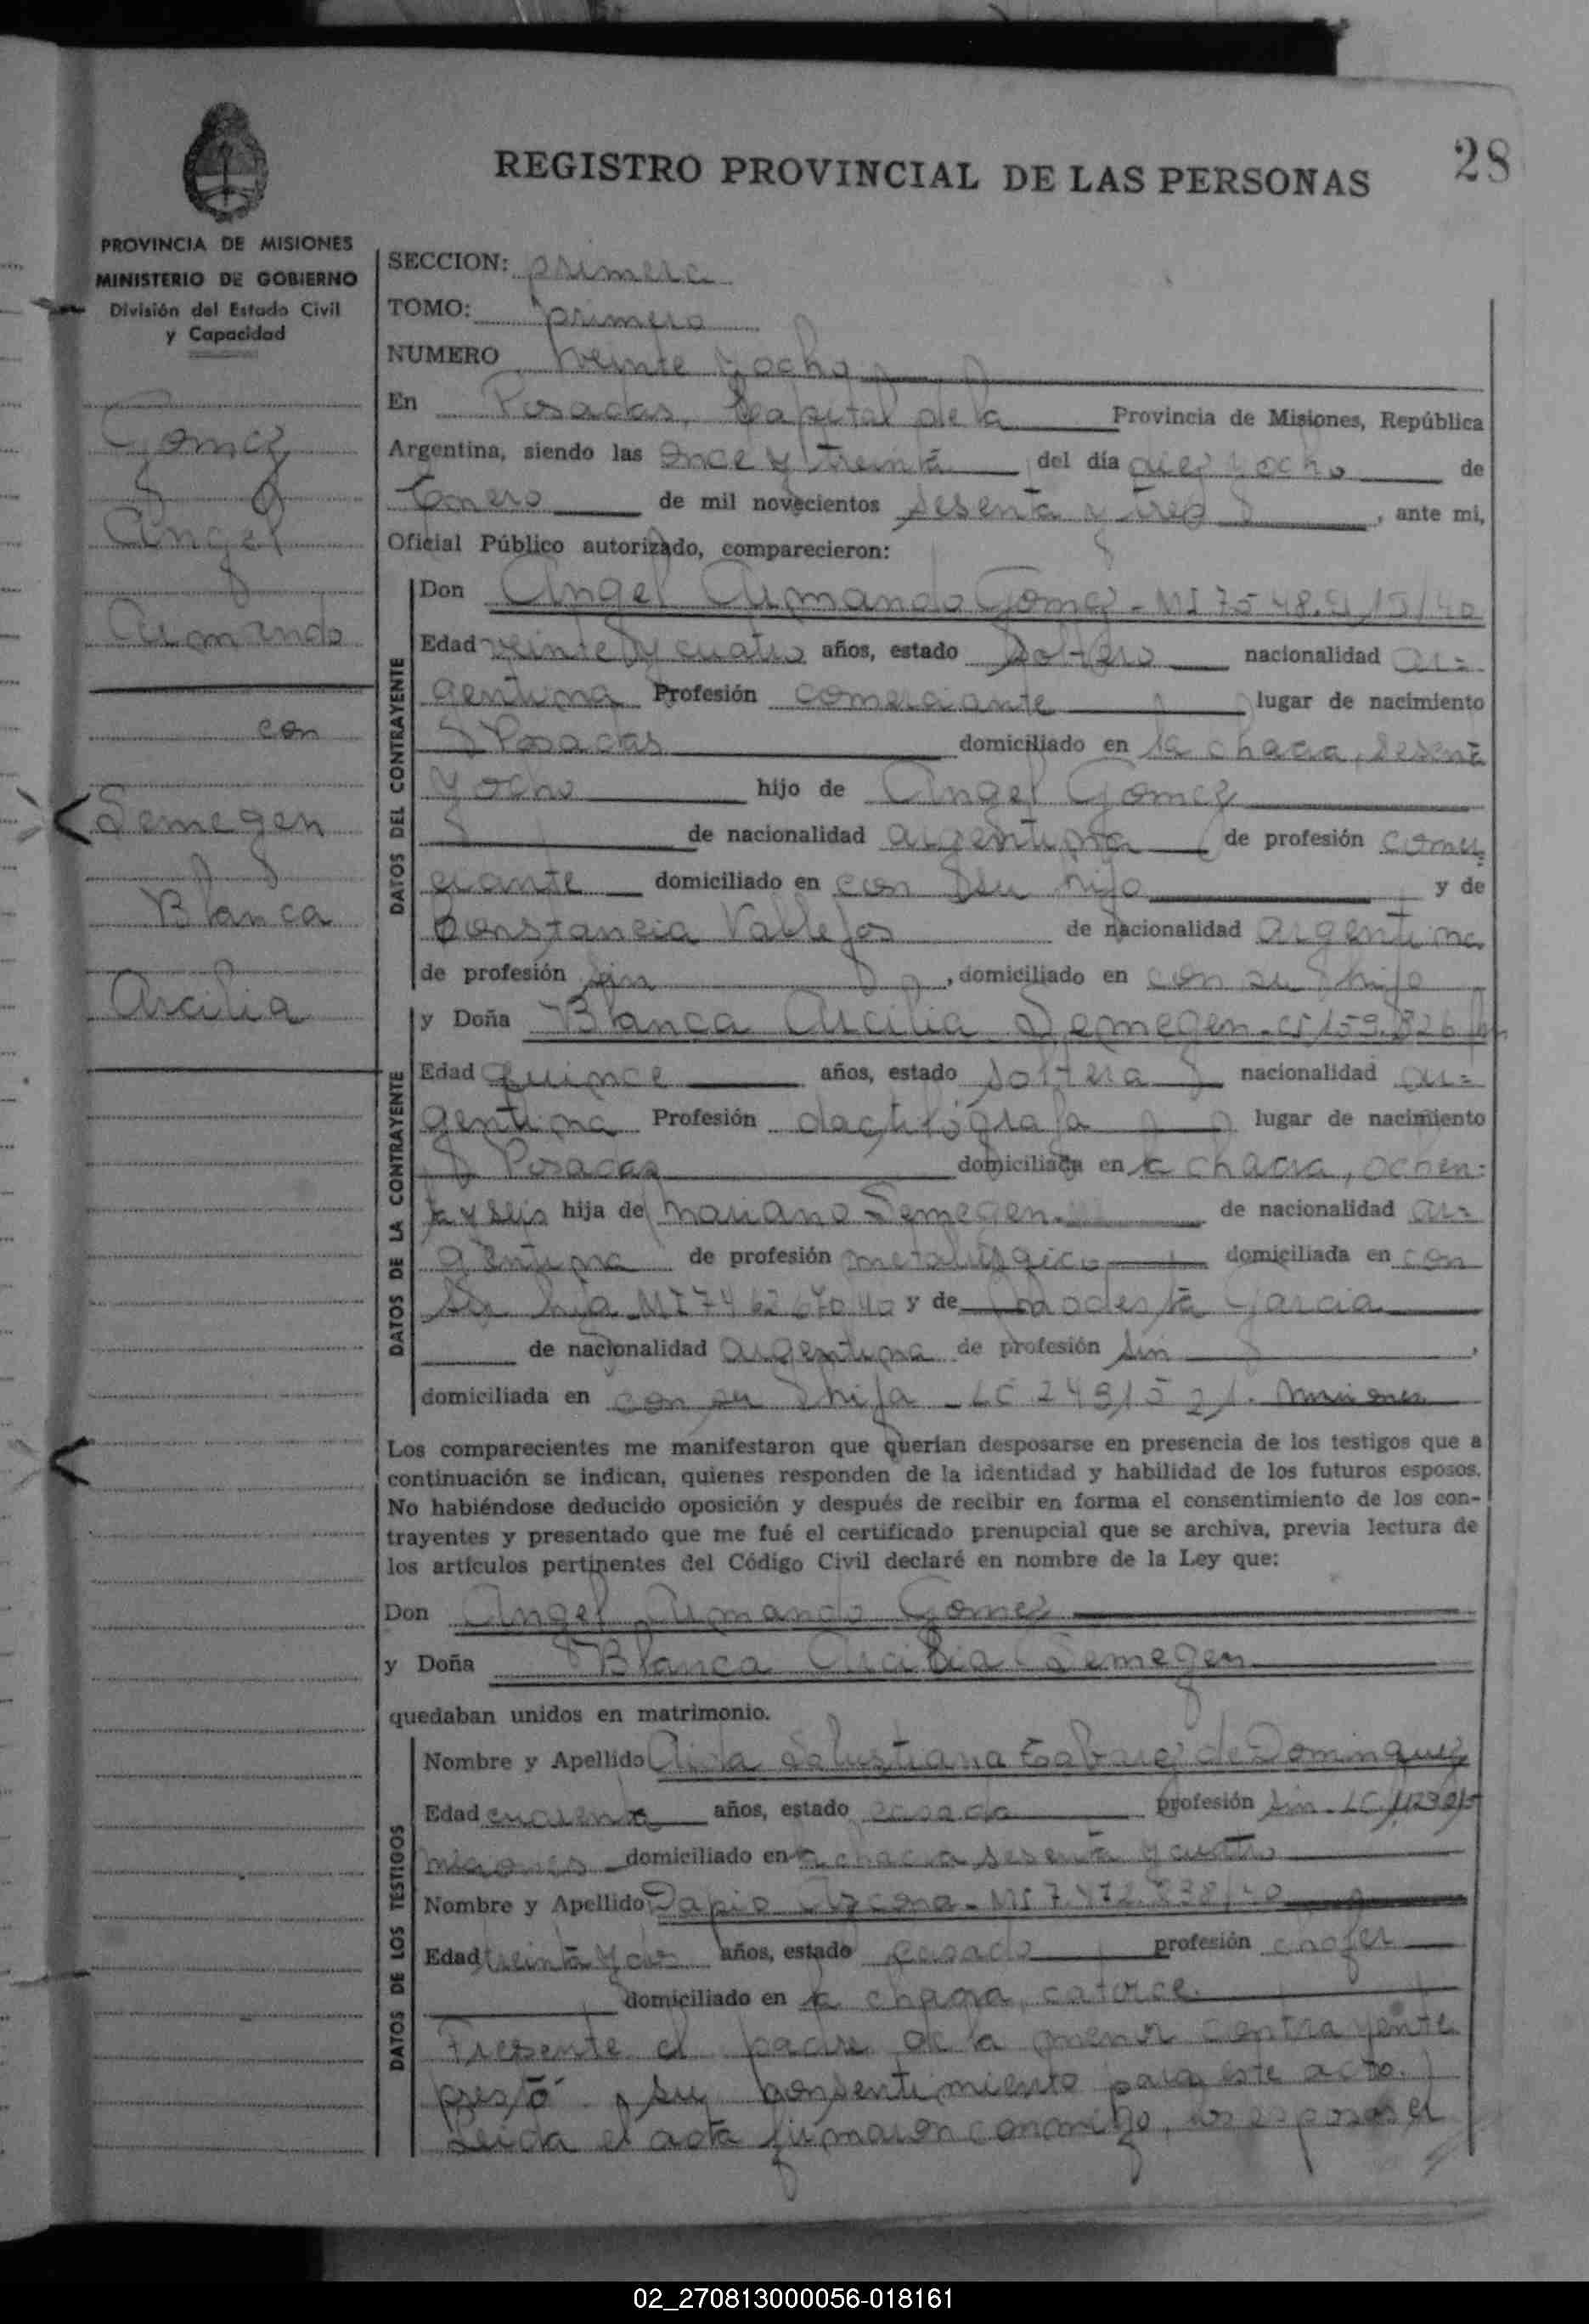 REGISTRO PROVINCIAL DE LAS PERSONAS
28
PROVINCIA DE MISIONES
MINISTERIO DE GOBIERNO
División del Estado Civil
y Capacidad
Gomez
Angel
Armando
con
Semegen
Blanca
Arcilia
SECCION: primera
TOMO: primero
NUMERO veinte y ocho
En Posadas, Capital de la Provincia de Misiones, República
Argentina, siendo las once y treinta del día diez y ocho de
Enero de mil novecientos sesenta y tres, ante mi,
Oficial Público autorizado, comparecieron:
DATOS DEL CONTRAYENTE
Don Angel Armando Gomez - MI
Edad veinte y cuatro años, estado soltero nacionalidad ar=
gentina Profesión comerciante lugar de nacimiento
Posadas domiciliado en la chacra, sesenta
y ocho hijo de Angel Gomez
de nacionalidad argentina de profesión comer
ciante domiciliado en con su hijo y de
Constancia Vallejos de nacionalidad argentina
de profesión sin, domiciliado en con su hijo
DATOS DE LA CONTRAYENTE
y Doña Blanca Arcilia Semegen - CI 159.826
Edad quince años, estado soltera nacionalidad ar=
gentina Profesión dactilógrafa lugar de nacimiento
Posadas domiciliada en la chacra, ochen=
ta y seis hija de Mariano Semegen. de nacionalidad ar=
gentina de profesión metalúrgico domiciliada en con
su hija MI y de Modesta Garcia
de nacionalidad argentina de profesión sin,
domiciliada en con su hija - LC Misiones
Los comparecientes me manifestaron que querían desposarse en presencia de los testigos que a
continuación se indican, quienes responden de la identidad y habilidad de los futuros esposos.
No habiéndose deducido oposición y después de recibir en forma el consentimiento de los con-
trayentes y presentado que me fué el certificado prenupcial que se archiva, previa lectura de
los artículos pertinentes del Código Civil declaré en nombre de la Ley que:
Don Angel Armando Gomez
y Doña Blanca Arcilia Semegen
quedaban unidos en matrimonio.
DATOS DE LOS TESTIGOS
Nombre y Apellido Aida Salustiana de Dominguez
Edad cuarenta años, estado casada profesión sin - LC
Misiones domiciliado en la chacra sesenta y cuatro
Nombre y Apellido Azcona - MI 7.472.838/40
Edad treinta y dos años, estado casado profesión chofer
domiciliado en la chacra, catorce.
Presente el padre de la menor contrayente
prestó su consentimiento para este acto.
Leida el acta firmaron conmigo, los esposos el
02_270813000056-018161